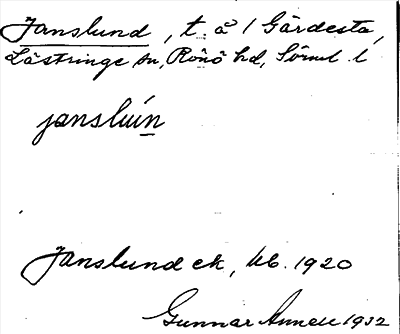 Janslund, t. å 1 Gärdesta,
Lästringe sn, Rönö hd, Sörml. l
jansluin
Janslund ek, Ub. 1920
Gunnar 1932